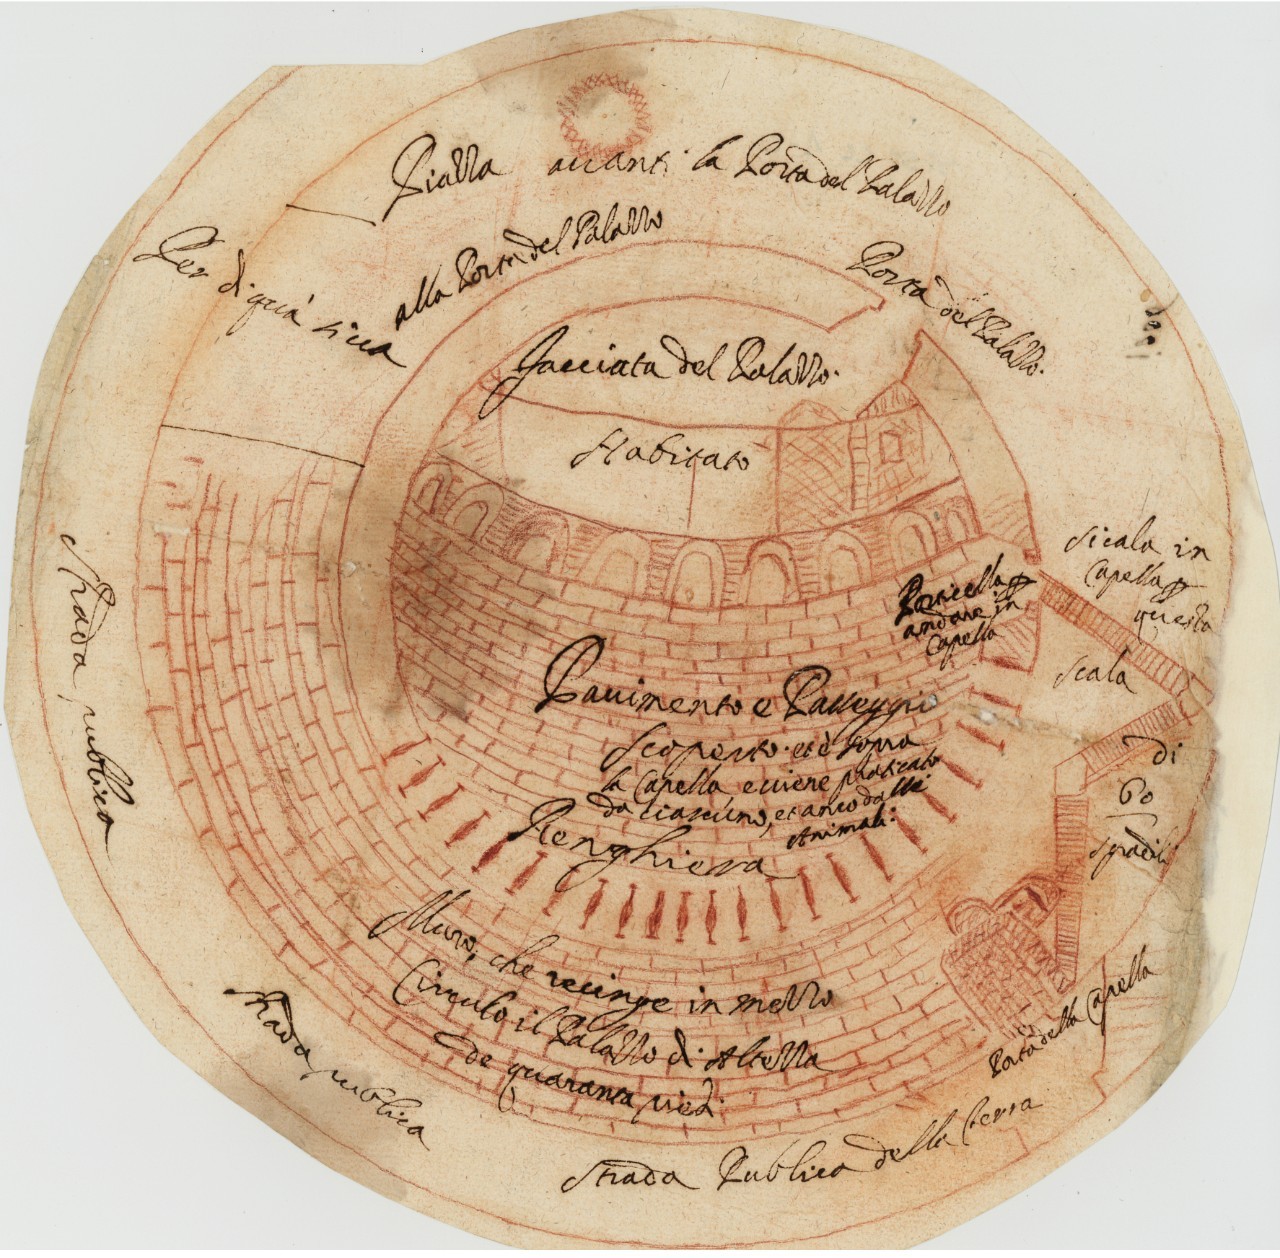 Piazza avanti la Porta del Palazzo
Per di quà si va
alla Porta del Palazzo
Porta del Palazzo.
Facciata del Palazzo.
Habitato
Porticella p
andare in
Capella
Sicala in
Capella p
questa
scala
di
60
Pavimento e Passeggio
scoperto. et è sopra
la Capella e viene praticato
da ciascuno, et anco dalli
Animali:
Renghiera
Muro, che recinge in mezzo
Circulo il Palazzo di Altezza
de quaranta piedi
Porta della Capella
strada publica
strada publica
strada Publica della terra